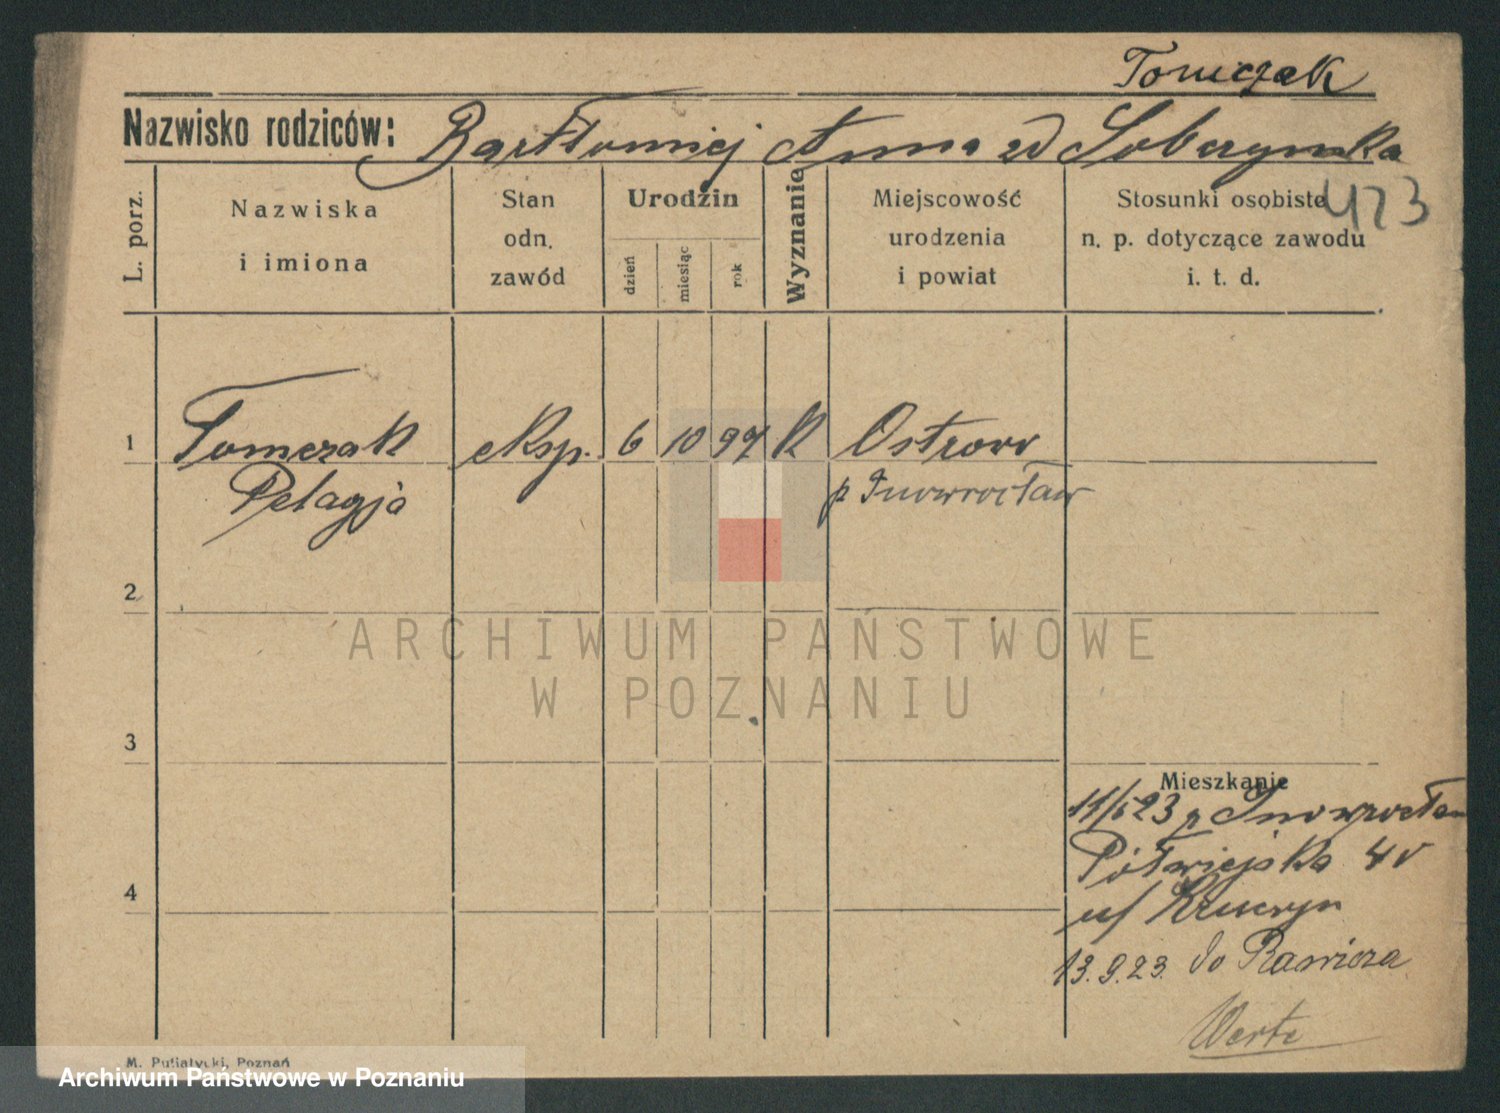 Tomczak
Nazwisko rodziców: Bartłomiej Anna zd Sobczynska
473
L. porz.
Nazwiska
i imiona
Stan
odn.
zawód
Urodzin
dzień
miesiąc
rok
Wyznanie
Miejscowość
urodzenia
i powiat
Stosunki osobiste
n. p. dotyczące zawodu
i. t. d.
1 Tomczak eksp. 6 10 97 k Ostrowo
Pelagja p Inowrocław
2
3
4
Mieszkanie
11/5 23 p Inowrocław
Półwiejska 4
13.9.23. do Rawicza
M. Putiatycki, Poznań
ARCHIWUM PAŃSTWOWE
W POZNANIU
Archiwum Państwowe w Poznaniu